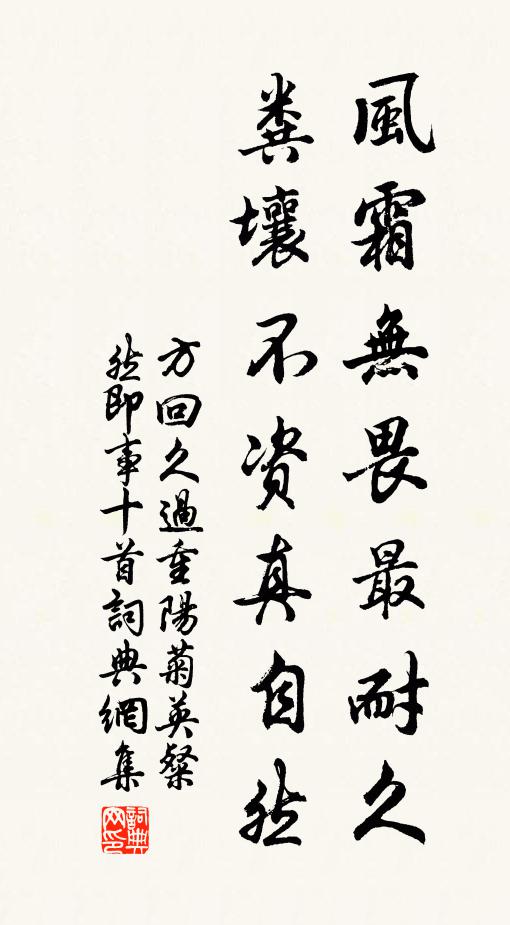 風霜無畏最耐久
糞壤不资真自然
方回久過重陽菊英粲
然即事十首詞典網集
詞典網印